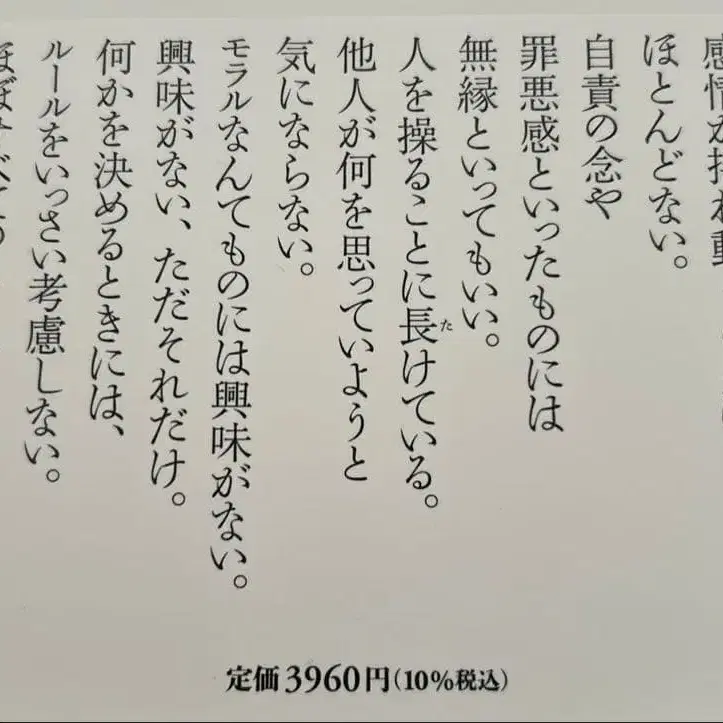 感情が揺れ動
ほとんどない。
自責の念や
罪悪感といったものには
無縁といってもいい。
人を操ることに長けている。
た
他人が何を思っていようと
気にならない。
モラルなんてものには興味がない。
興味がない、ただそれだけ。
何かを決めるときには、
ルールをいっさい考慮しない。
ほぼすべての
定価3960円(10%税込)